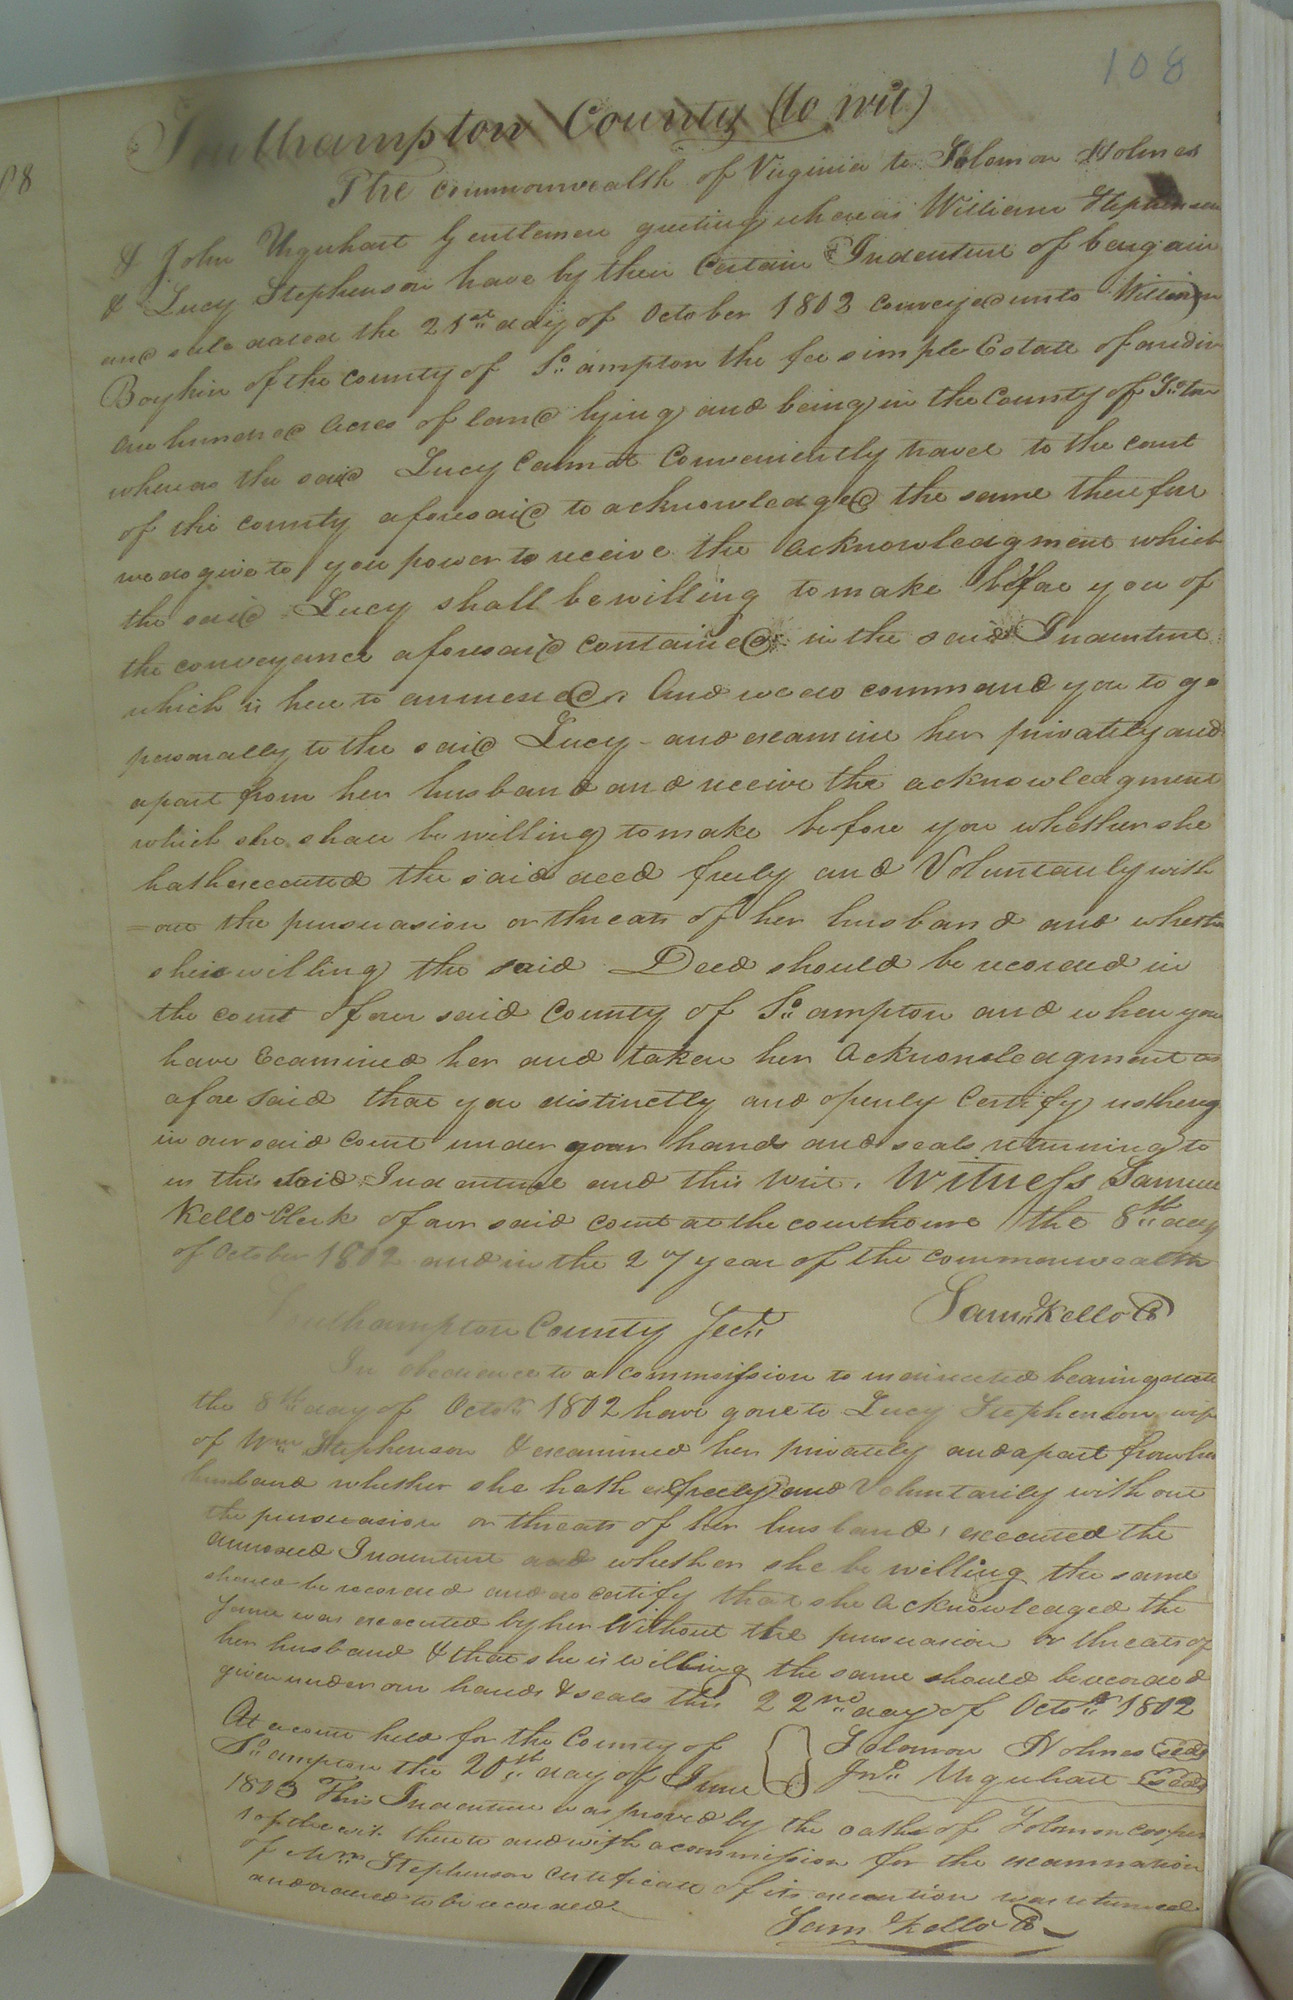 108
Southampton County (to wit)
The commonwealth of Virginia to Solomon Holmes
& John Urquhart Gentlemen greeting whereas William Stephenson
& Lucy Stephenson have by their Certain Indenture of bargain
and sale dated the 21st day of October 1803 conveyed unto William
Boykin of the county of So. ampton the fee simple Estate of and in
one hundred Acres of land lying and being in the County of So. ton
whereas the said Lucy Cannot Conveniently travel to the court
of the county aforesaid to acknowledged the same therefore
we do give to you power to receive the acknowledgment which
the said Lucy shall be willing to make before you of
the conveyance aforesaid contained in the said Indenture
which is here to annexed And we do command you to go
personally to the said Lucy and examine her privately and
apart from her husband and receive the acknowledgment
which she shall be willing to make before you whether she
hath executed the said deed freely and Voluntarily with
=out the persuasion or threats of her husband and whether
she is willing the said Deed should be recorded in
the court of our said County of So. ampton and when you
have Examined her and taken her Acknowledgment as
afore said that you distinctly and openly Certify us thereof
in our said Court under your hands and seals returning to
us the said Indenture and this writ. Witness Samuel
Kello Clerk of our said court at the courthouse the 8th day
of October 1802 and in the 27 year of the commonwealth
Saml Kello C
Southampton County Sect
In obedience to a commission to us directed bearing date
the 8th day of Octor 1802 have gone to Lucy Stephenson wife
of Wm Stephenson & examined her privately and apart from her
husband whether she hath freely and Voluntarily with out
the persuasion or threats of her husband executed the
annexed Indenture and whether she be willing the same
should be recorded and do certify that she Acknowledged the
same was executed by her Without the persuasion or threats of
her husband & that she is willing the same should be recorded
given under our hands & seals this 22nd day of Octor 1802
Solomon Holmes seal
Jno Urquhart seal
At a court held for the County of
So. ampton the 20th day of June
1803 This Indenture was proved by the oaths of Solomon Cooper
thereto and with a commission for the examination
of Mrs Stephenson Certificate of its execution was returned
and ordered to be recorded
Sam Kello C